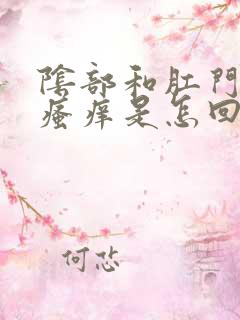 陰部和肛門
瘙痒是怎回
何忿